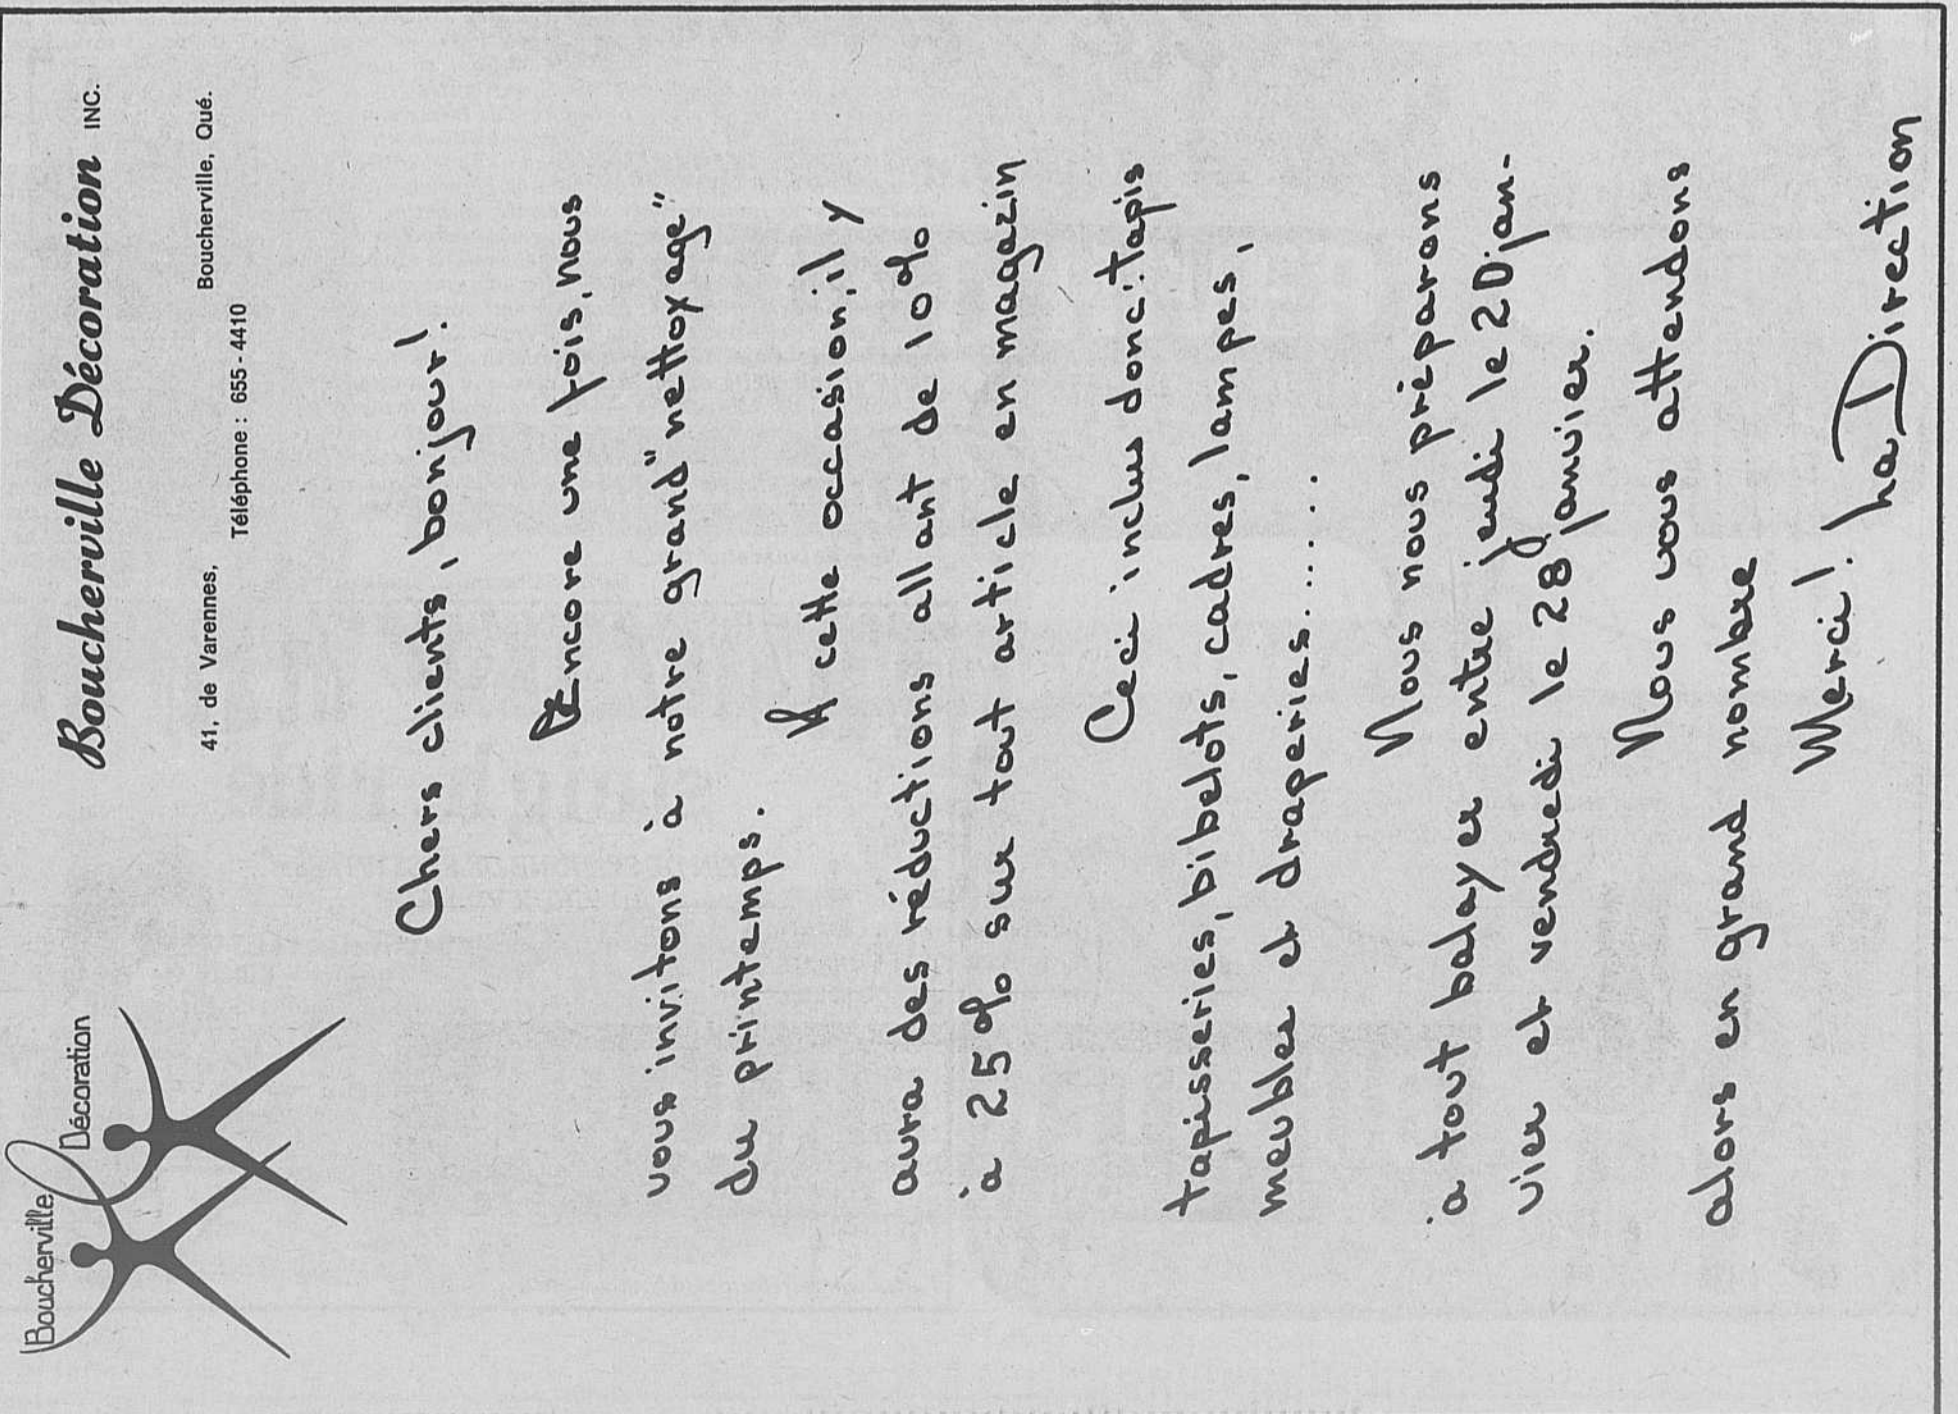 Boucherville Décoration
Boucherville Décoration INC.
41, de Varennes, Boucherville, Qué.
Téléphone : 655-4410
Chers clients, bonjour!
Encore une fois, nous
vous invitons à notre grand "nettoyage"
du printemps.
A cette occasion, il y
aura des réductions allant de 10%
à 25% sur tout article en magazin
Ceci inclus donc: tapis
tapisseries, bibelots, cadres, lampes,
meubles et draperies.......
Nous nous préparons
à tout balayer entre jeudi le 20 jan-
vier et vendredi le 28 janvier.
Nous vous attendons
alors en grand nombre
Merci! La Direction